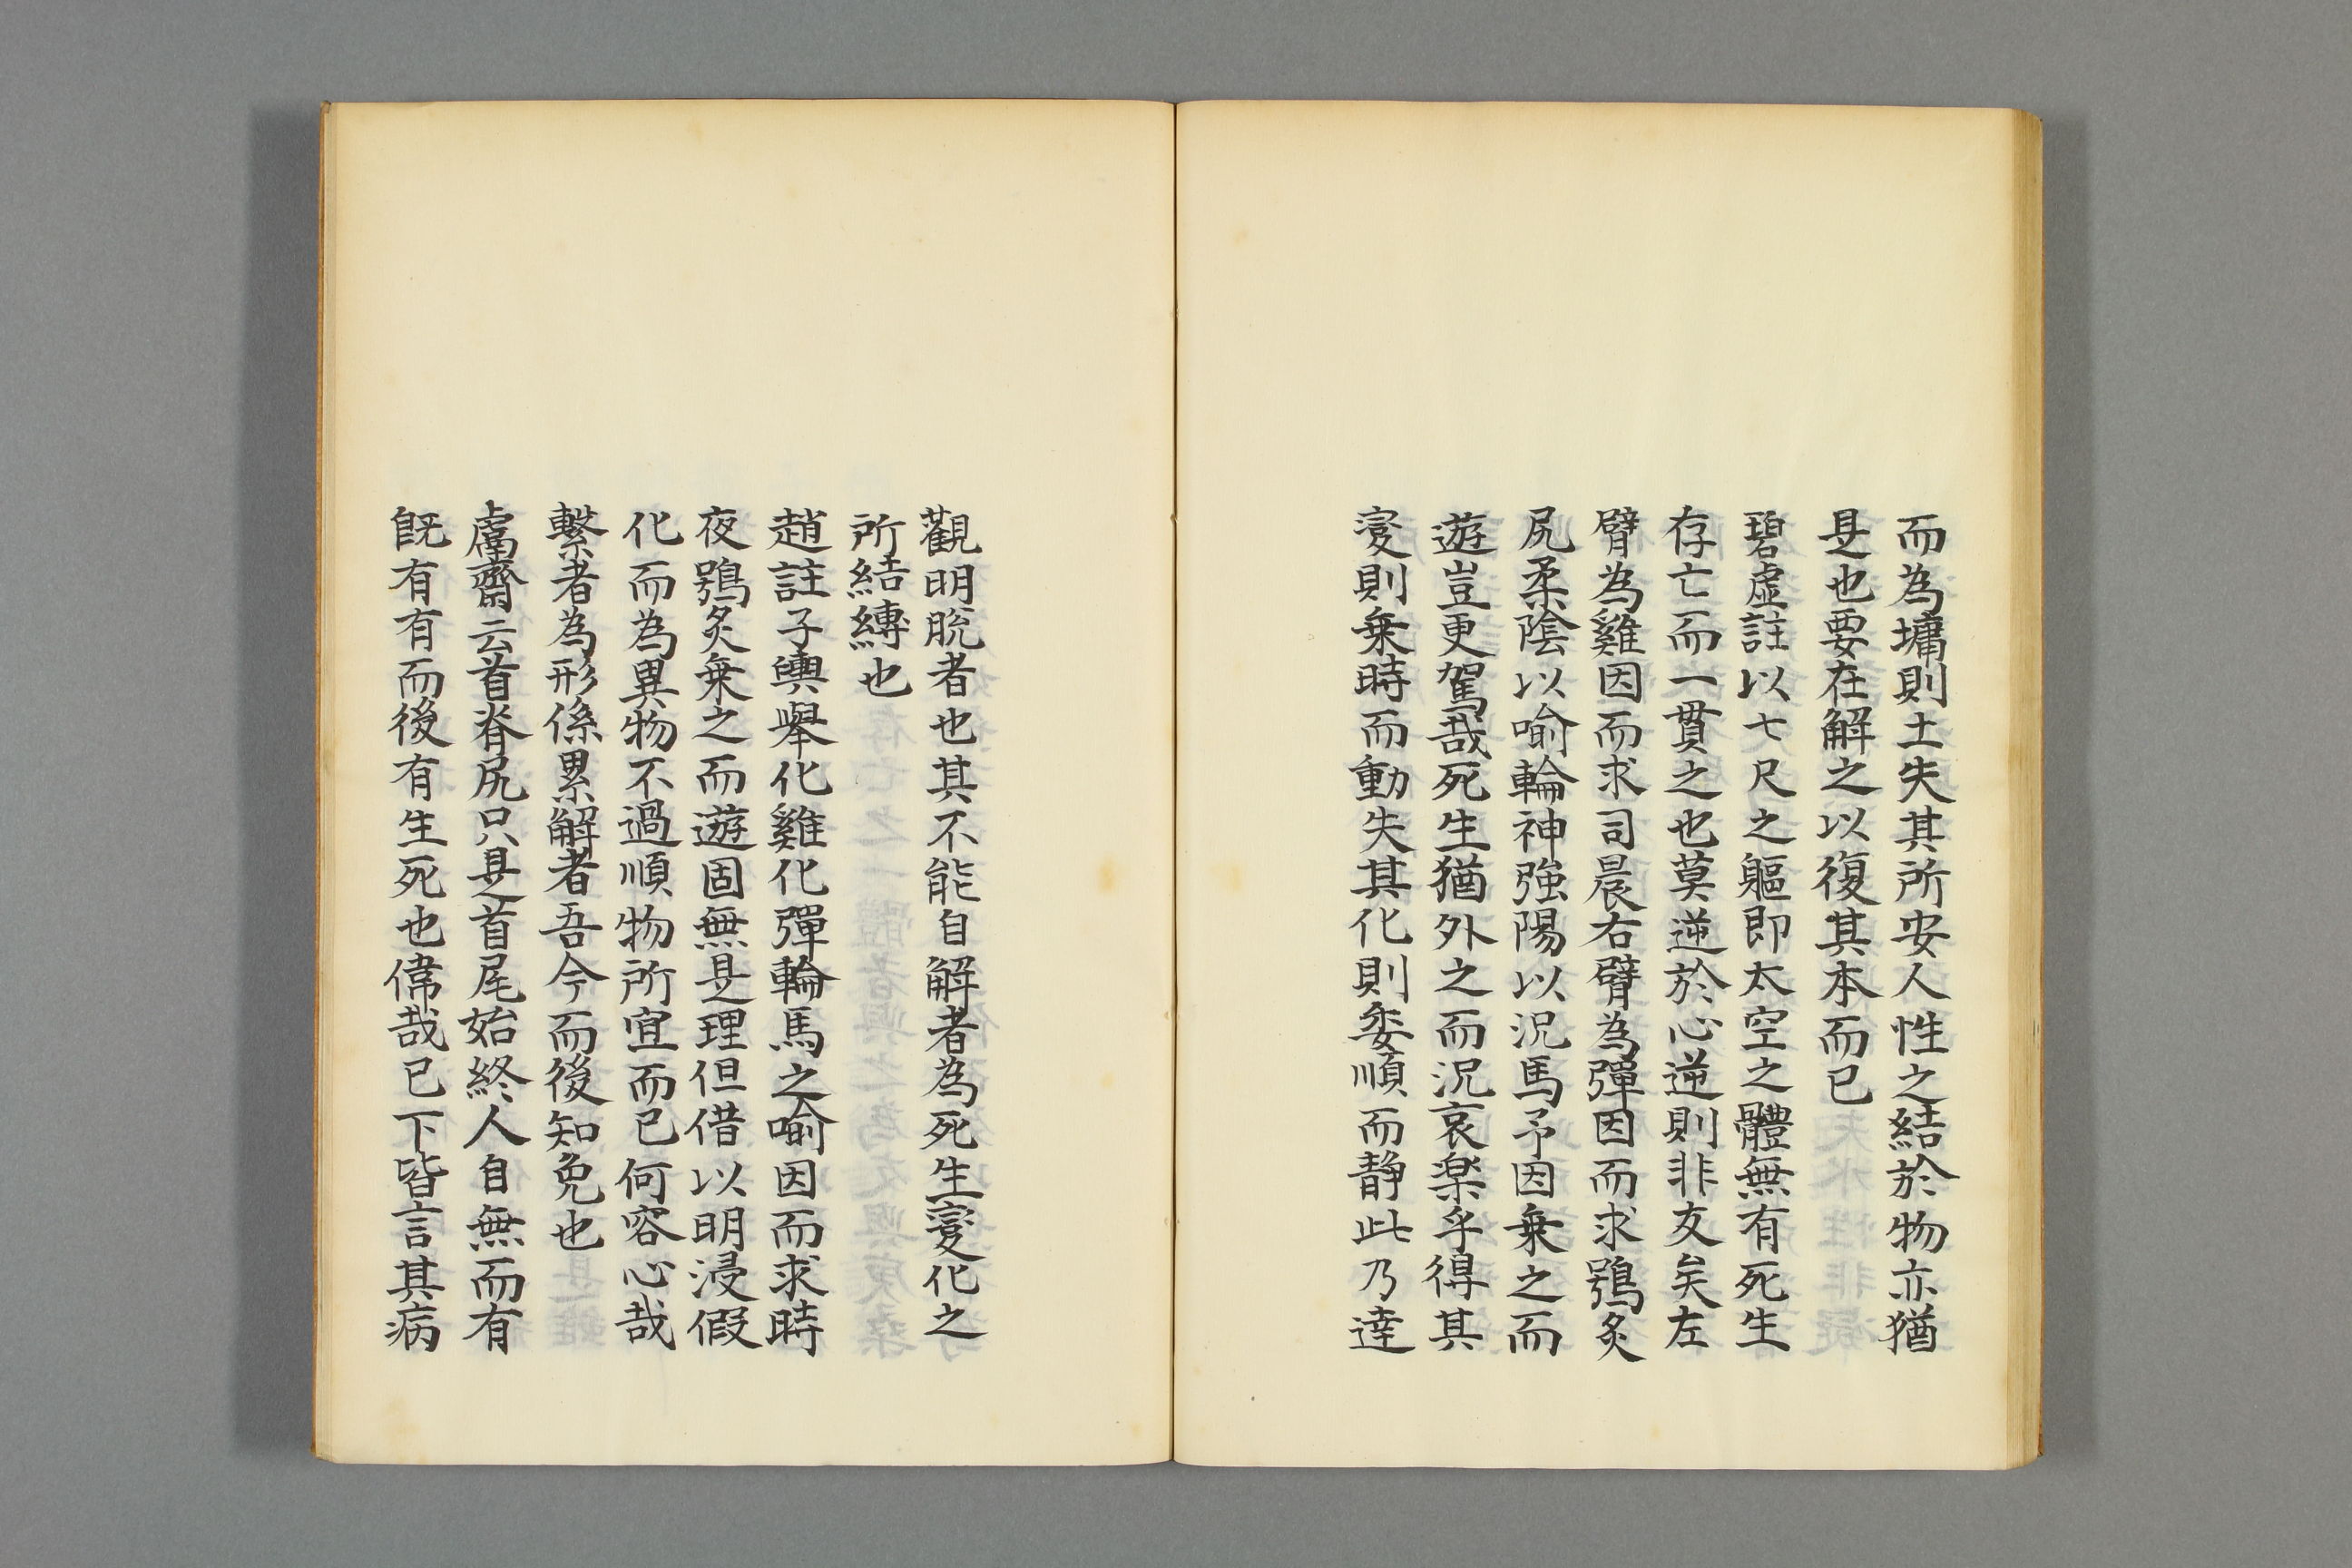 而為墉則土失其所安人性之結於物亦猶
是也要在解之以復其本而已
碧虛註以七尺之軀即太空之體無有死生
存亡而一貫之也莫逆於心逆則非友矣左
臂為雞因而求司晨右臂為彈因而求鴞炙
尻柔陰以喻輪神強陽以況馬予因乗之而
遊豈更駕哉死生猶外之而況哀楽乎得其
変則乗時而動失其化則委順而静此乃達
觀明脫者也其不能自解者為死生変化之
所結縛也
趙註子輿舉化雞化彈輪馬之喻因而求時
夜鴞炙乗之而遊固無是理但借以明浸假
化而為異物不過順物所宜而已何容心哉
繫者為形係累解者吾今而後知免也
鬳齋云首脊尻只是首尾始終人自無而有
既有有而後有生死也偉哉已下皆言其病